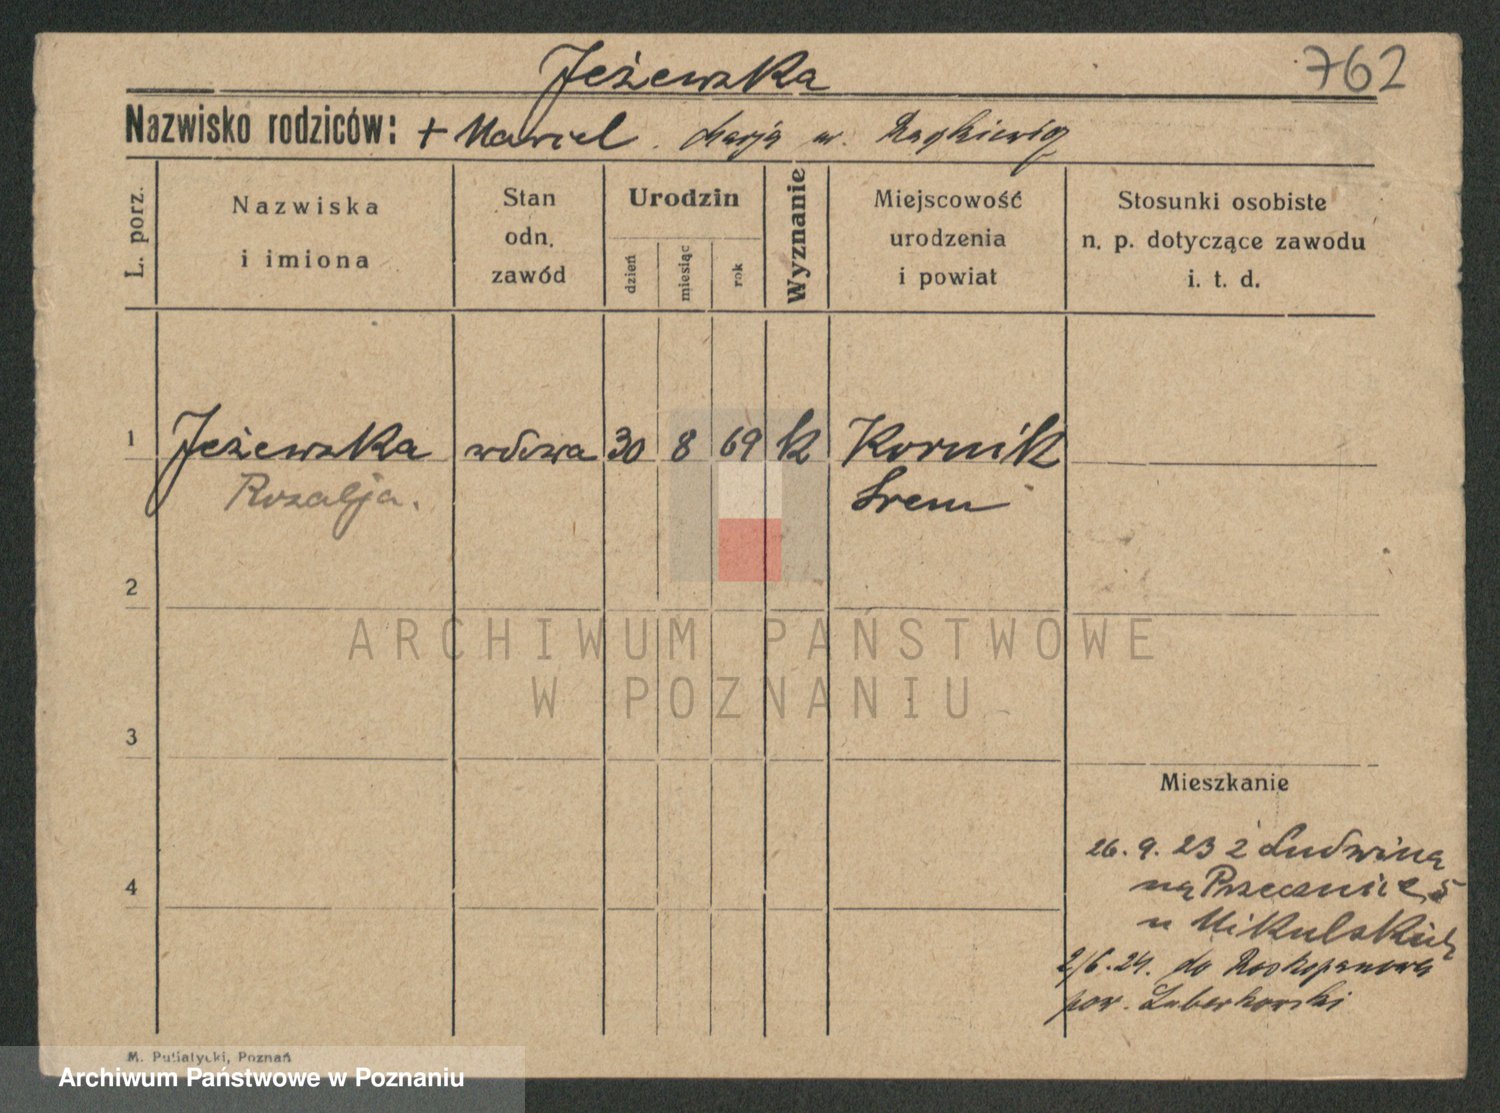 Jeżewska 762
Nazwisko rodziców: + Marcel. Marja
L. porz.
Nazwiska
i imiona
Stan
odn.
zawód
Urodzin
dzień
miesiąc
rok
Wyznanie
Miejscowość
urodzenia
i powiat
Stosunki osobiste
n. p. dotyczące zawodu
i. t. d.
1 Jeżewska wdowa 30 8 69 k Kornik
Rozalja. Srem
2
ARCHIWUM PAŃSTWOWE
W POZNANIU
3
Mieszkanie
26. 9. 23 z Ludwina
4
na Przecznice 5
u Mikulskich
2/6. 24. do
pow.
M. Putiatycki, Poznań
Archiwum Państwowe w Poznaniu